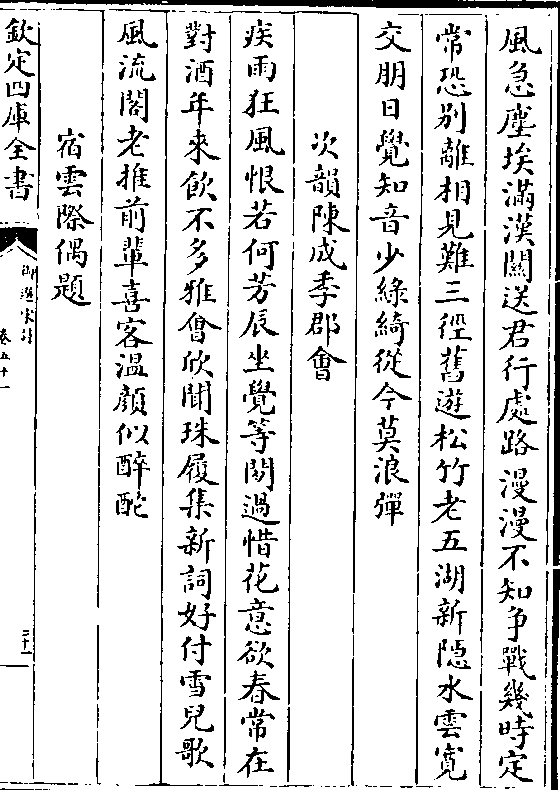 風急塵埃滿漢關送君行處路漫漫不知争戰幾時定
常恐别離相見難三徑舊遊松竹老五湖新隠水雲寛
交朋日覺知音少綠綺從今莫浪彈
次韻陳成季郡會
疾雨狂風恨若何芳辰坐覺等閑過惜花意欲春常在
對酒年來飲不多雅會欣聞珠履集新詞好付雪兒歌
風流閣老推前輩喜客温顔似醉酡
宿雲際偶題
欽定四庫全書
御選宋詩
卷五十一